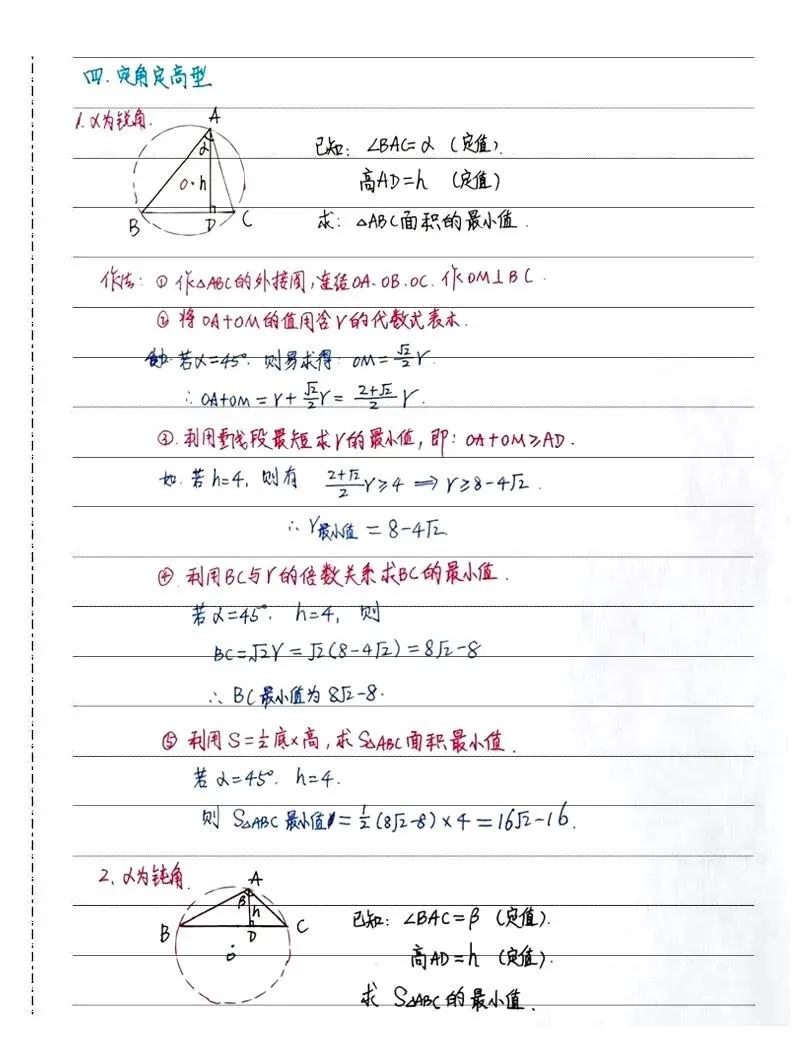 四. 定角定高型
1. α为锐角.
A
α
O
h
B
D
C
已知: ∠BAC=α (定值).
高AD=h (定值)
求: △ABC面积的最小值.
作法: ① 作△ABC的外接圆,连结OA、OB、OC. 作OM⊥BC.
② 将OA+OM的值用含r的代数式表示.
若α=45°. 则易求得: OM=√2/2 r.
∴ OA+OM=r+√2/2 r=(2+√2)/2 r.
③. 利用垂线段最短求r的最小值, 即: OA+OM≥AD.
如. 若h=4, 则有 (2+√2)/2 r≥4 ⟹ r≥8-4√2.
∴ r最小值=8-4√2
④ 利用BC与r的倍数关系求BC的最小值.
若α=45°. h=4, 则
BC=√2r=√2(8-4√2)=8√2-8
∴ BC最小值为8√2-8.
⑤ 利用S=½底×高, 求S△ABC面积最小值.
若α=45°. h=4.
则 S△ABC最小值=½(8√2-8)×4=16√2-16.
2、α为钝角.
A
β
h
B
D
C
O
已知: ∠BAC=β (定值).
高AD=h (定值).
求 S△ABC的最小值.